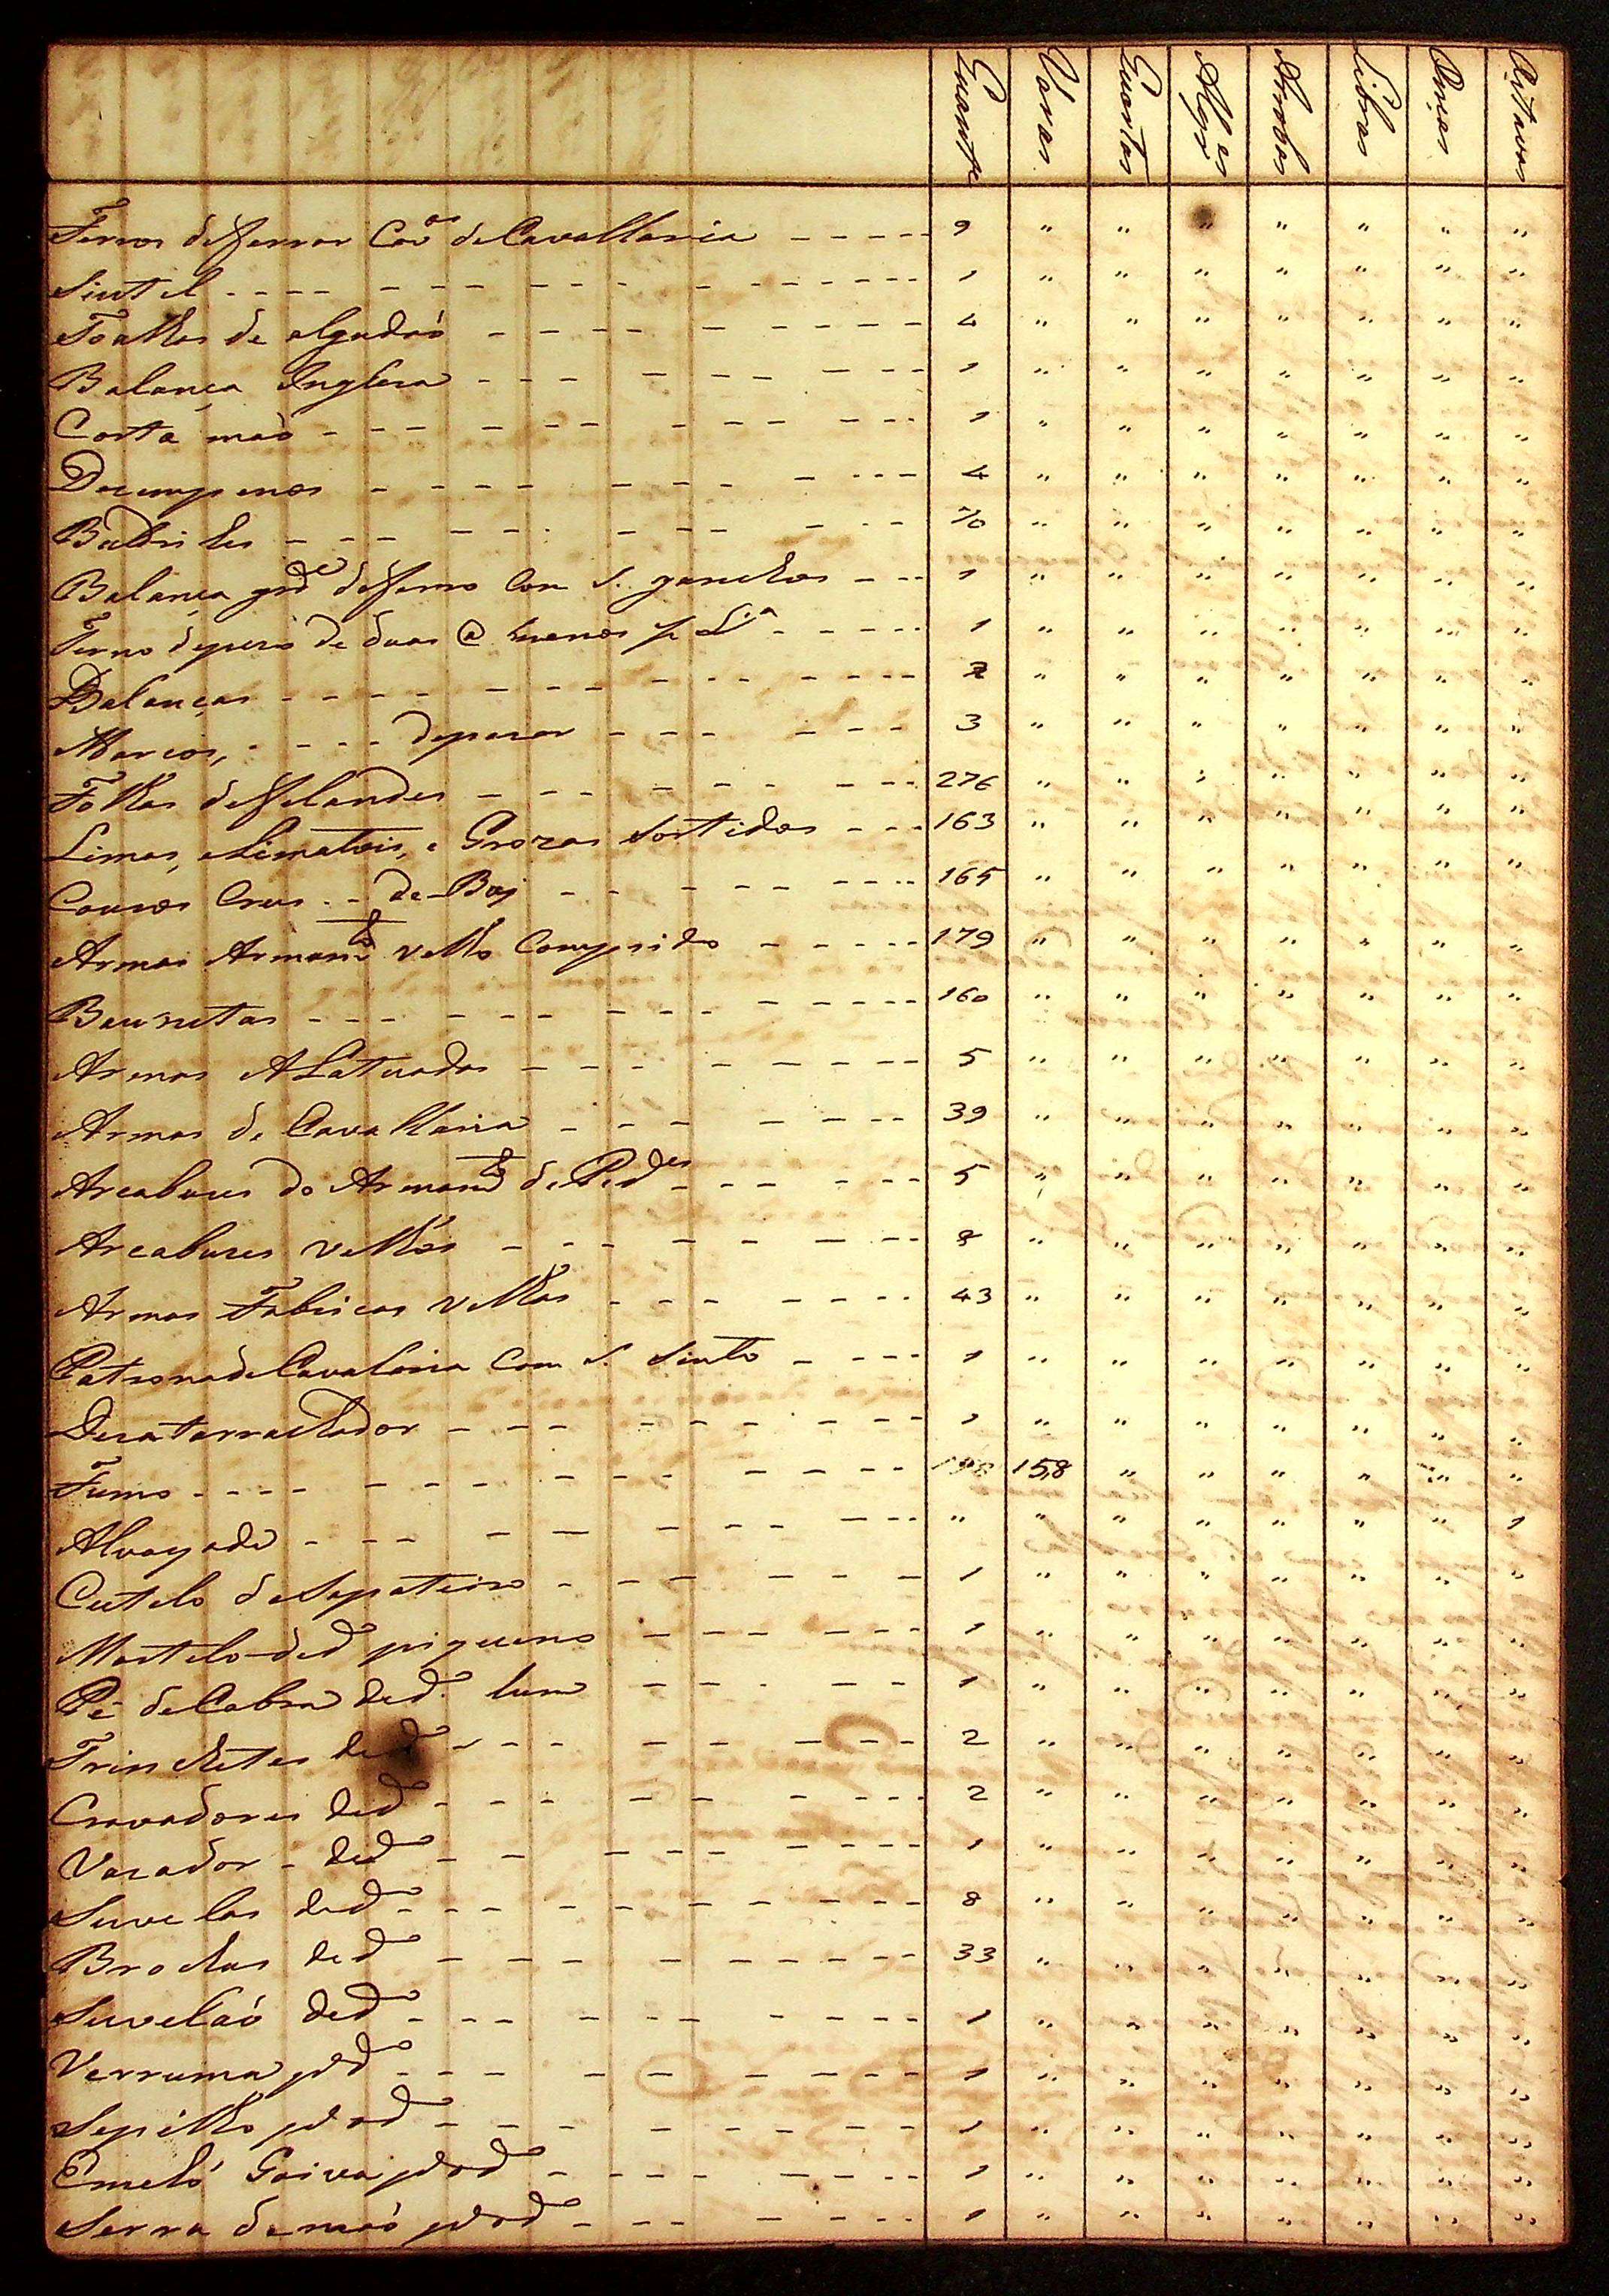 Quant.e Varas Quartas Alq.es Arrobas Libras Onças Oitavas
Ferros deferrar Cav.os deCavallaria - - - - - 9 " " " " " " "
Sintel - - - - 1 " " " " " " "
Toalhas de algudaó - - - - 4 " " " " " " "
Balança Inglesa - - - 1 " " " " " " "
Corta maó - - - 1 " " " " " " "
Decempenos - - - - 4 " " " " " " "
Badriles - - - 70 " " " " " " "
Balança grd.e deferro Com S. ganchos - - - 1 " " " " " " "
Terno depezo de duas @ menos - - - - - 1 " " " " " " "
Balanças - - - - 2 " " " " " " "
Marcos, - - - - depezar - - - 3 " " " " " " "
Folhas deFelandes - - - 276 " " " " " " "
Limas, eLimatois, e Grozas Sortidas - - - 163 " " " " " " "
Couros Crus - - de Boj - - 165 " " " " " " "
Armas Armam.to velho Comprido - - - - - 179 " " " " " " "
Baunetas - - - 160 " " " " " " "
Armas ALatuadas - - - 5 " " " " " " "
Armas de Cavallaria - - - 39 " " " " " " "
Arcabuses do Armam.to de Ped.es - - - 5 " " " " " " "
Arcabuses velhos - - - 8 " " " " " " "
Armas Fabricas velhas - - - 43 " " " " " " "
Patrona deCavalaria Com S. Sinto - - - - 1 " " " " " " "
Desatarrachador - - - 1 " " " " " " "
Fumo - - - - 158 " " " " " "
Alvayade - - - " " " " " " " 1
Cutelo deSapateiro - - - 1 " " " " " " "
Martelo ded.o piqueno - - - - 1 " " " " " " "
Pé deCabra ded.o hum - - - 1 " " " " " " "
Trinchetes ded.o - - - 2 " " " " " " "
Cravadores ded.o - - - 2 " " " " " " "
Vazador - ded.o - - 1 " " " " " " "
Suvelas ded.o - - - 8 " " " " " " "
Brochas ded.o - - - 33 " " " " " " "
Suvelaó ded.o - - - 1 " " " " " " "
Verruma pd.o - - - 1 " " " " " " "
Sepilho - - - 1 " " " " " " "
Emeló Goiva - - - - 1 " " " " " " "
Serra demaó - - - 1 " " " " " " "